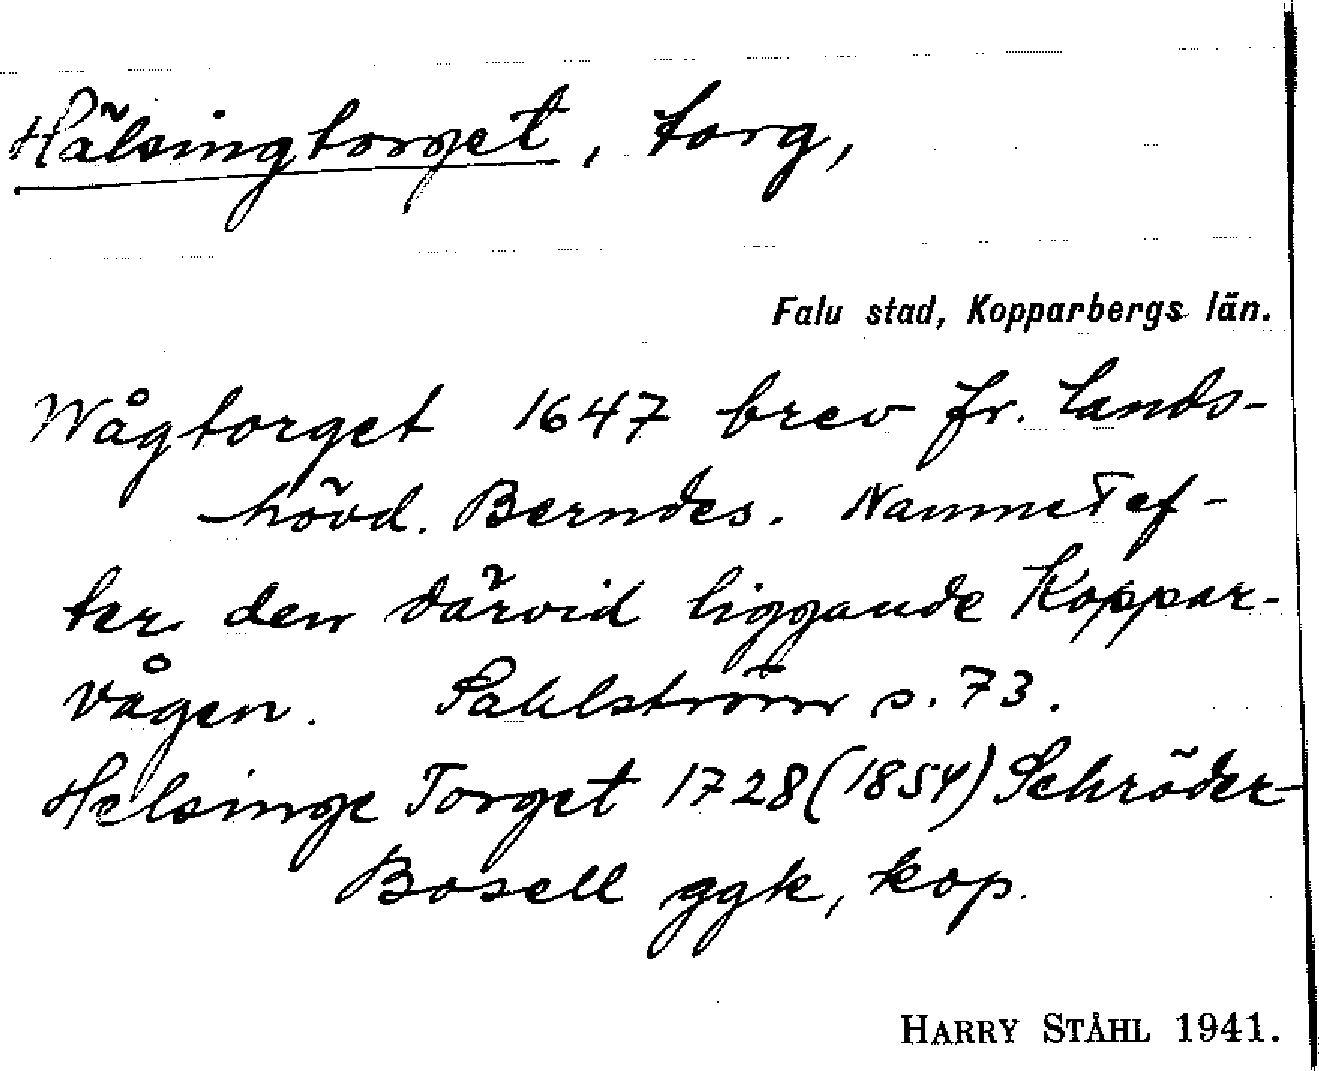 Hälsingtorget, torg,
Falu stad, Kopparbergs län.
Wågtorget 1647 brev fr. lands-
hövd. Berndes. Namnet ef-
ter den därvid liggande Koppar-
vågen. Sahlström s. 73.
Helsinge Torget 1728 (1854) Schröder-
Bosell ggk, kop.
HARRY STÅHL 1941.